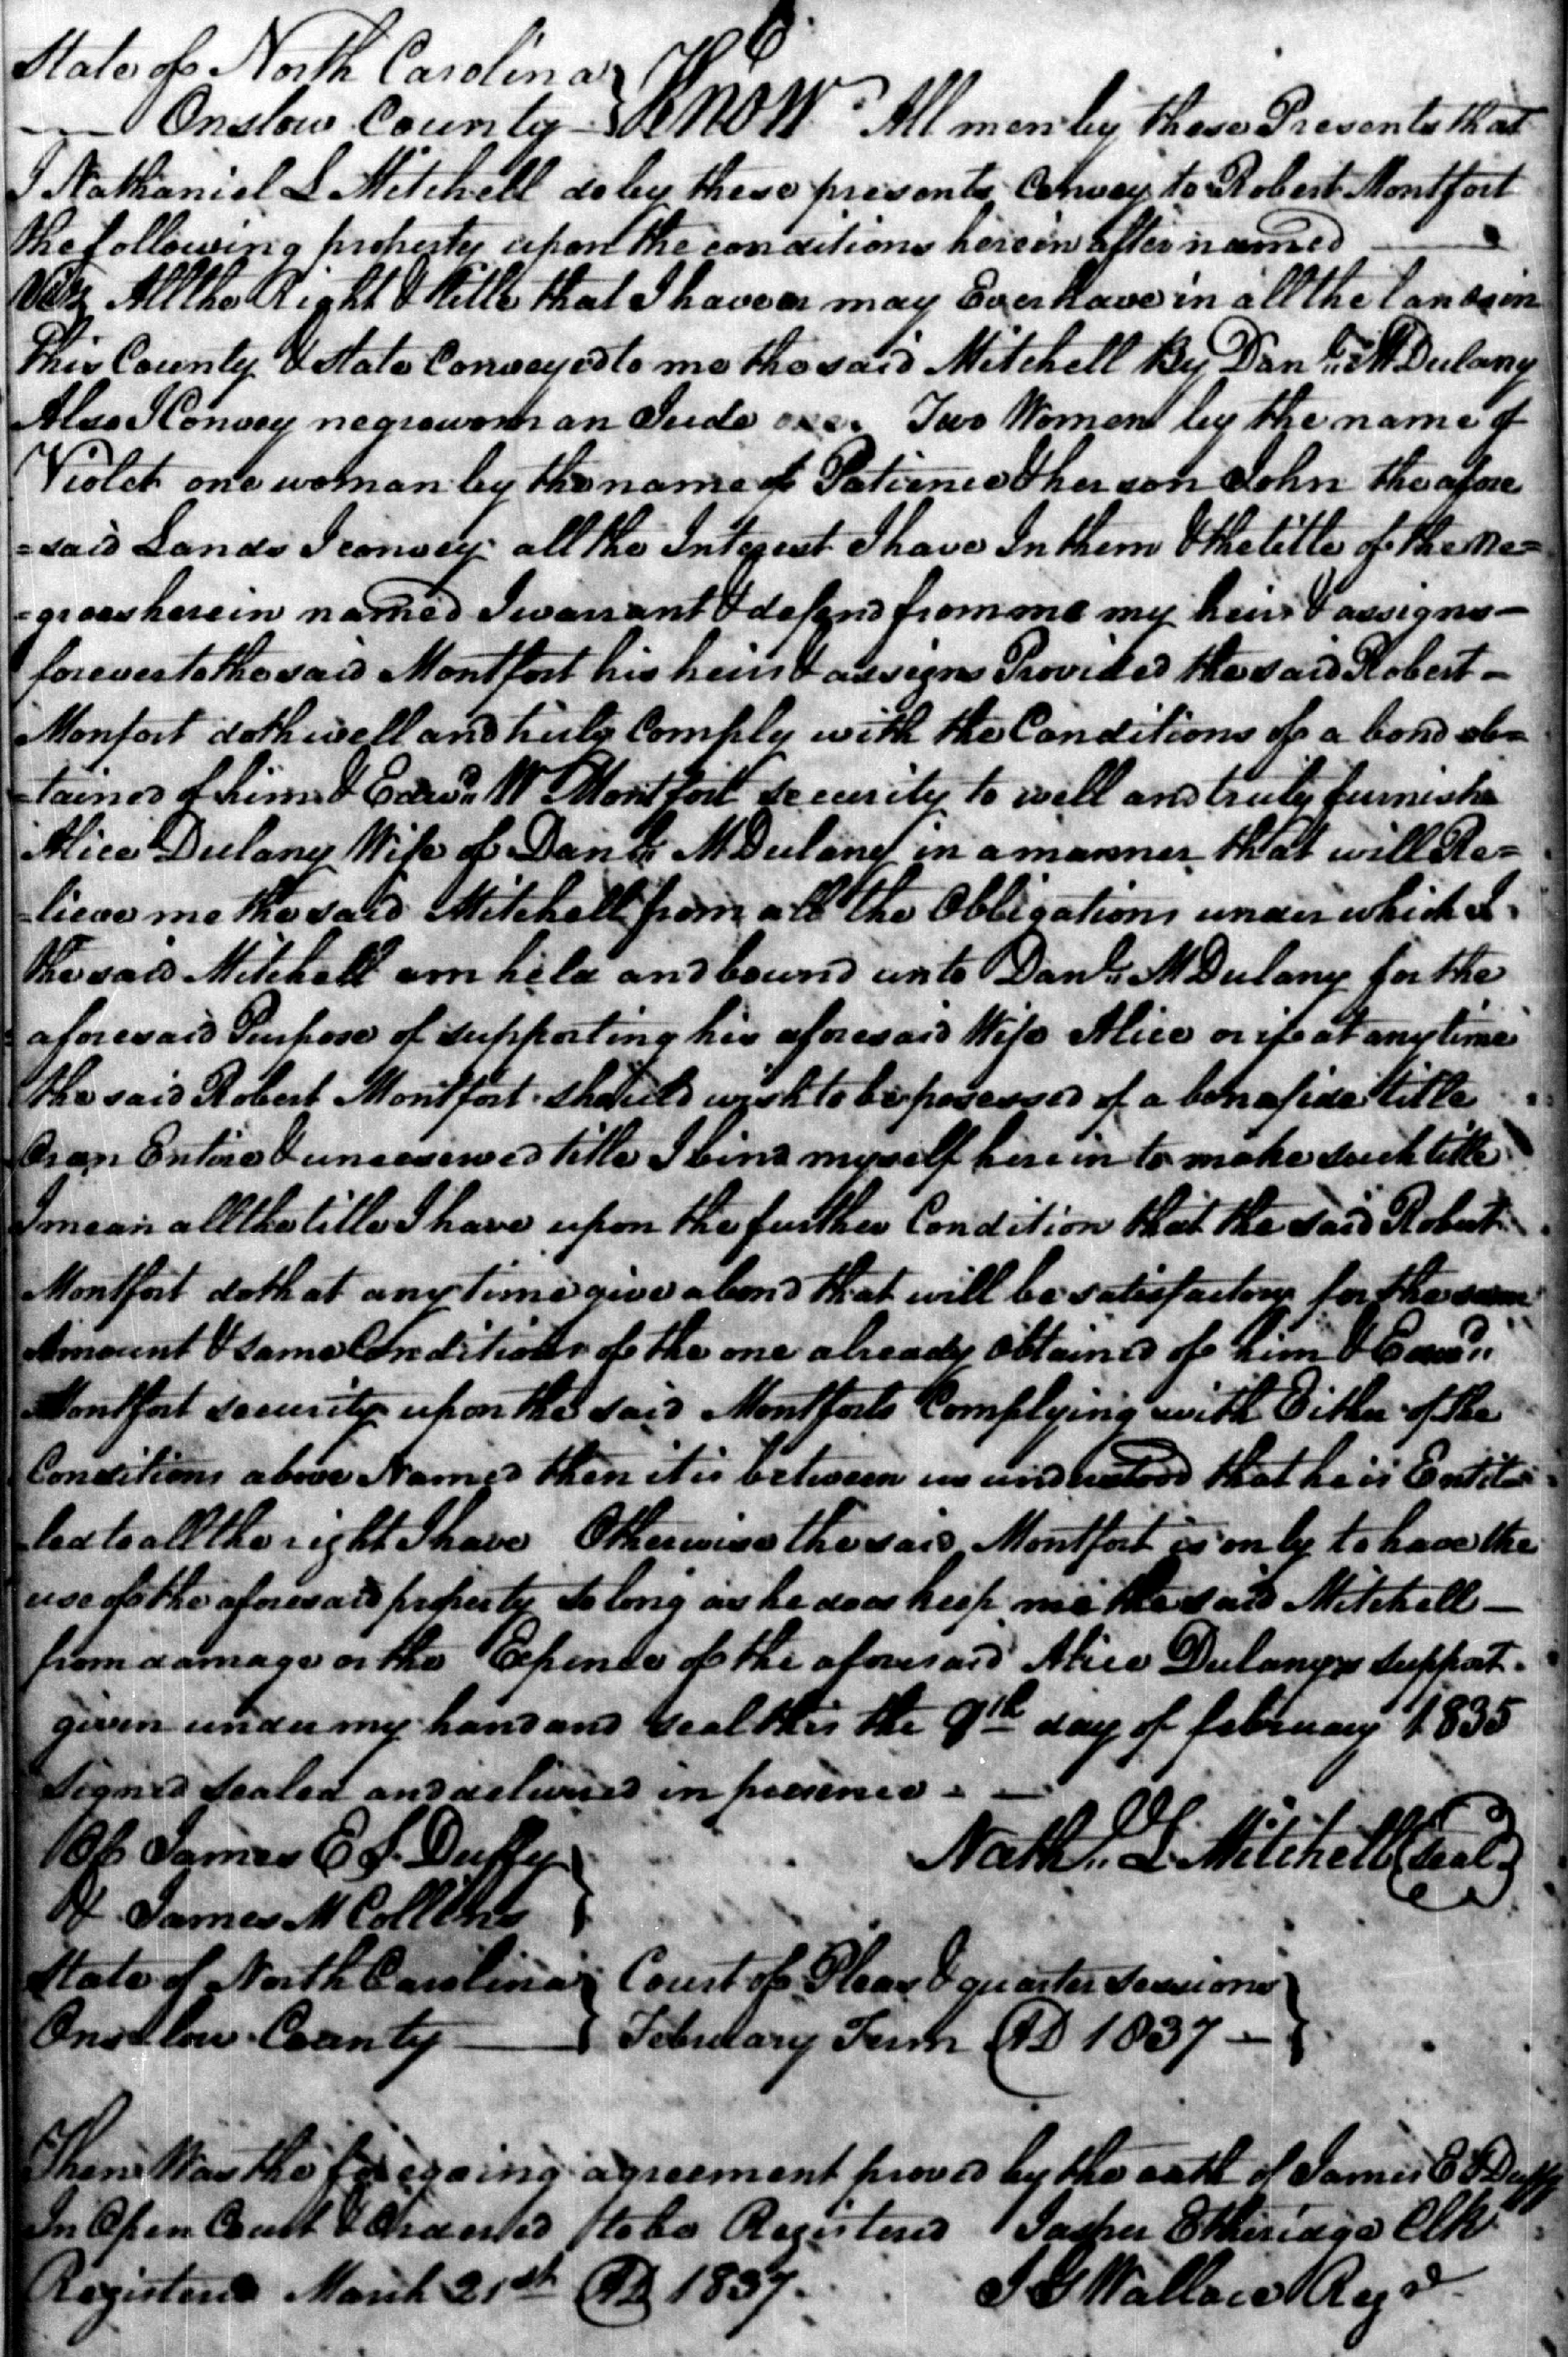 State of North Carolina
Onslow County Know All men by these Presents that
I Nathaniel L Mitchell do by these presents Convey to Robert Montfort
the following property upon the conditions herein after named
Viz All the Right & title that I have or may Ever have in all the lands in
this County & State Conveyed to me the said Mitchell By Danl. M Dulany
Also I Convey negrowoman Jude Two Women by the name of
Violet one woman by the name of Patience & her son John the afore
=said Lands I convey all the Interest I have In them & the title of the ne=
=groes herein named I warrant & defend from me my heirs & assigns —
forever to the said Montfort his heirs & assigns Provided the said Robert —
Monfort doth well and truly Comply with the Conditions of a bond ob=
=tained of him & Edwd. W Montfort security to well and truly furnish
Alice Dulany Wife of Danl. M Dulany in a manner that will Re=
=lieve me the said Mitchell from all the Obligations under which I
the said Mitchell am held and bound unto Danl. M Dulany for the
aforesaid Purpose of supporting his aforesaid Wife Alice or if at anytime
the said Robert Montfort should wish to be posessed of a bonafide title
Or an Entire & unreserved title I bind myself herein to make such title
I mean all the title I have upon the further Condition that the said Robert
Montfort doth at any time give a bond that will be satisfactory for the same
Amount & same Conditions of the one already obtained of him & Edwd.
Montfort security upon the said Montforts Complying with Either of the
Conditions above Named then it is between us understood that he is Entit
led to all the right I have Otherwise the said Montfort is only to have the
use of the aforesaid property so long as he does keep me the said Mitchell —
from damage or the Expence of the aforesaid Alice Dulanys support.
given under my hand and seal this the 9th day of february 1835
Signed sealed and delivered in presence
Of James E S. Duffy Nathl. L Mitchell (seal)
& James M Collins
State of North Carolina Court of Pleas & quarter sessions
Onslow County February Term AD 1837 —
Then Was the foregoing agreement proved by the oath of James E S Duffy
In Open Court & Ordered to be Registered Jasper Etheridge Clk
Registered March 21st AD 1837. J G Wallace Regr